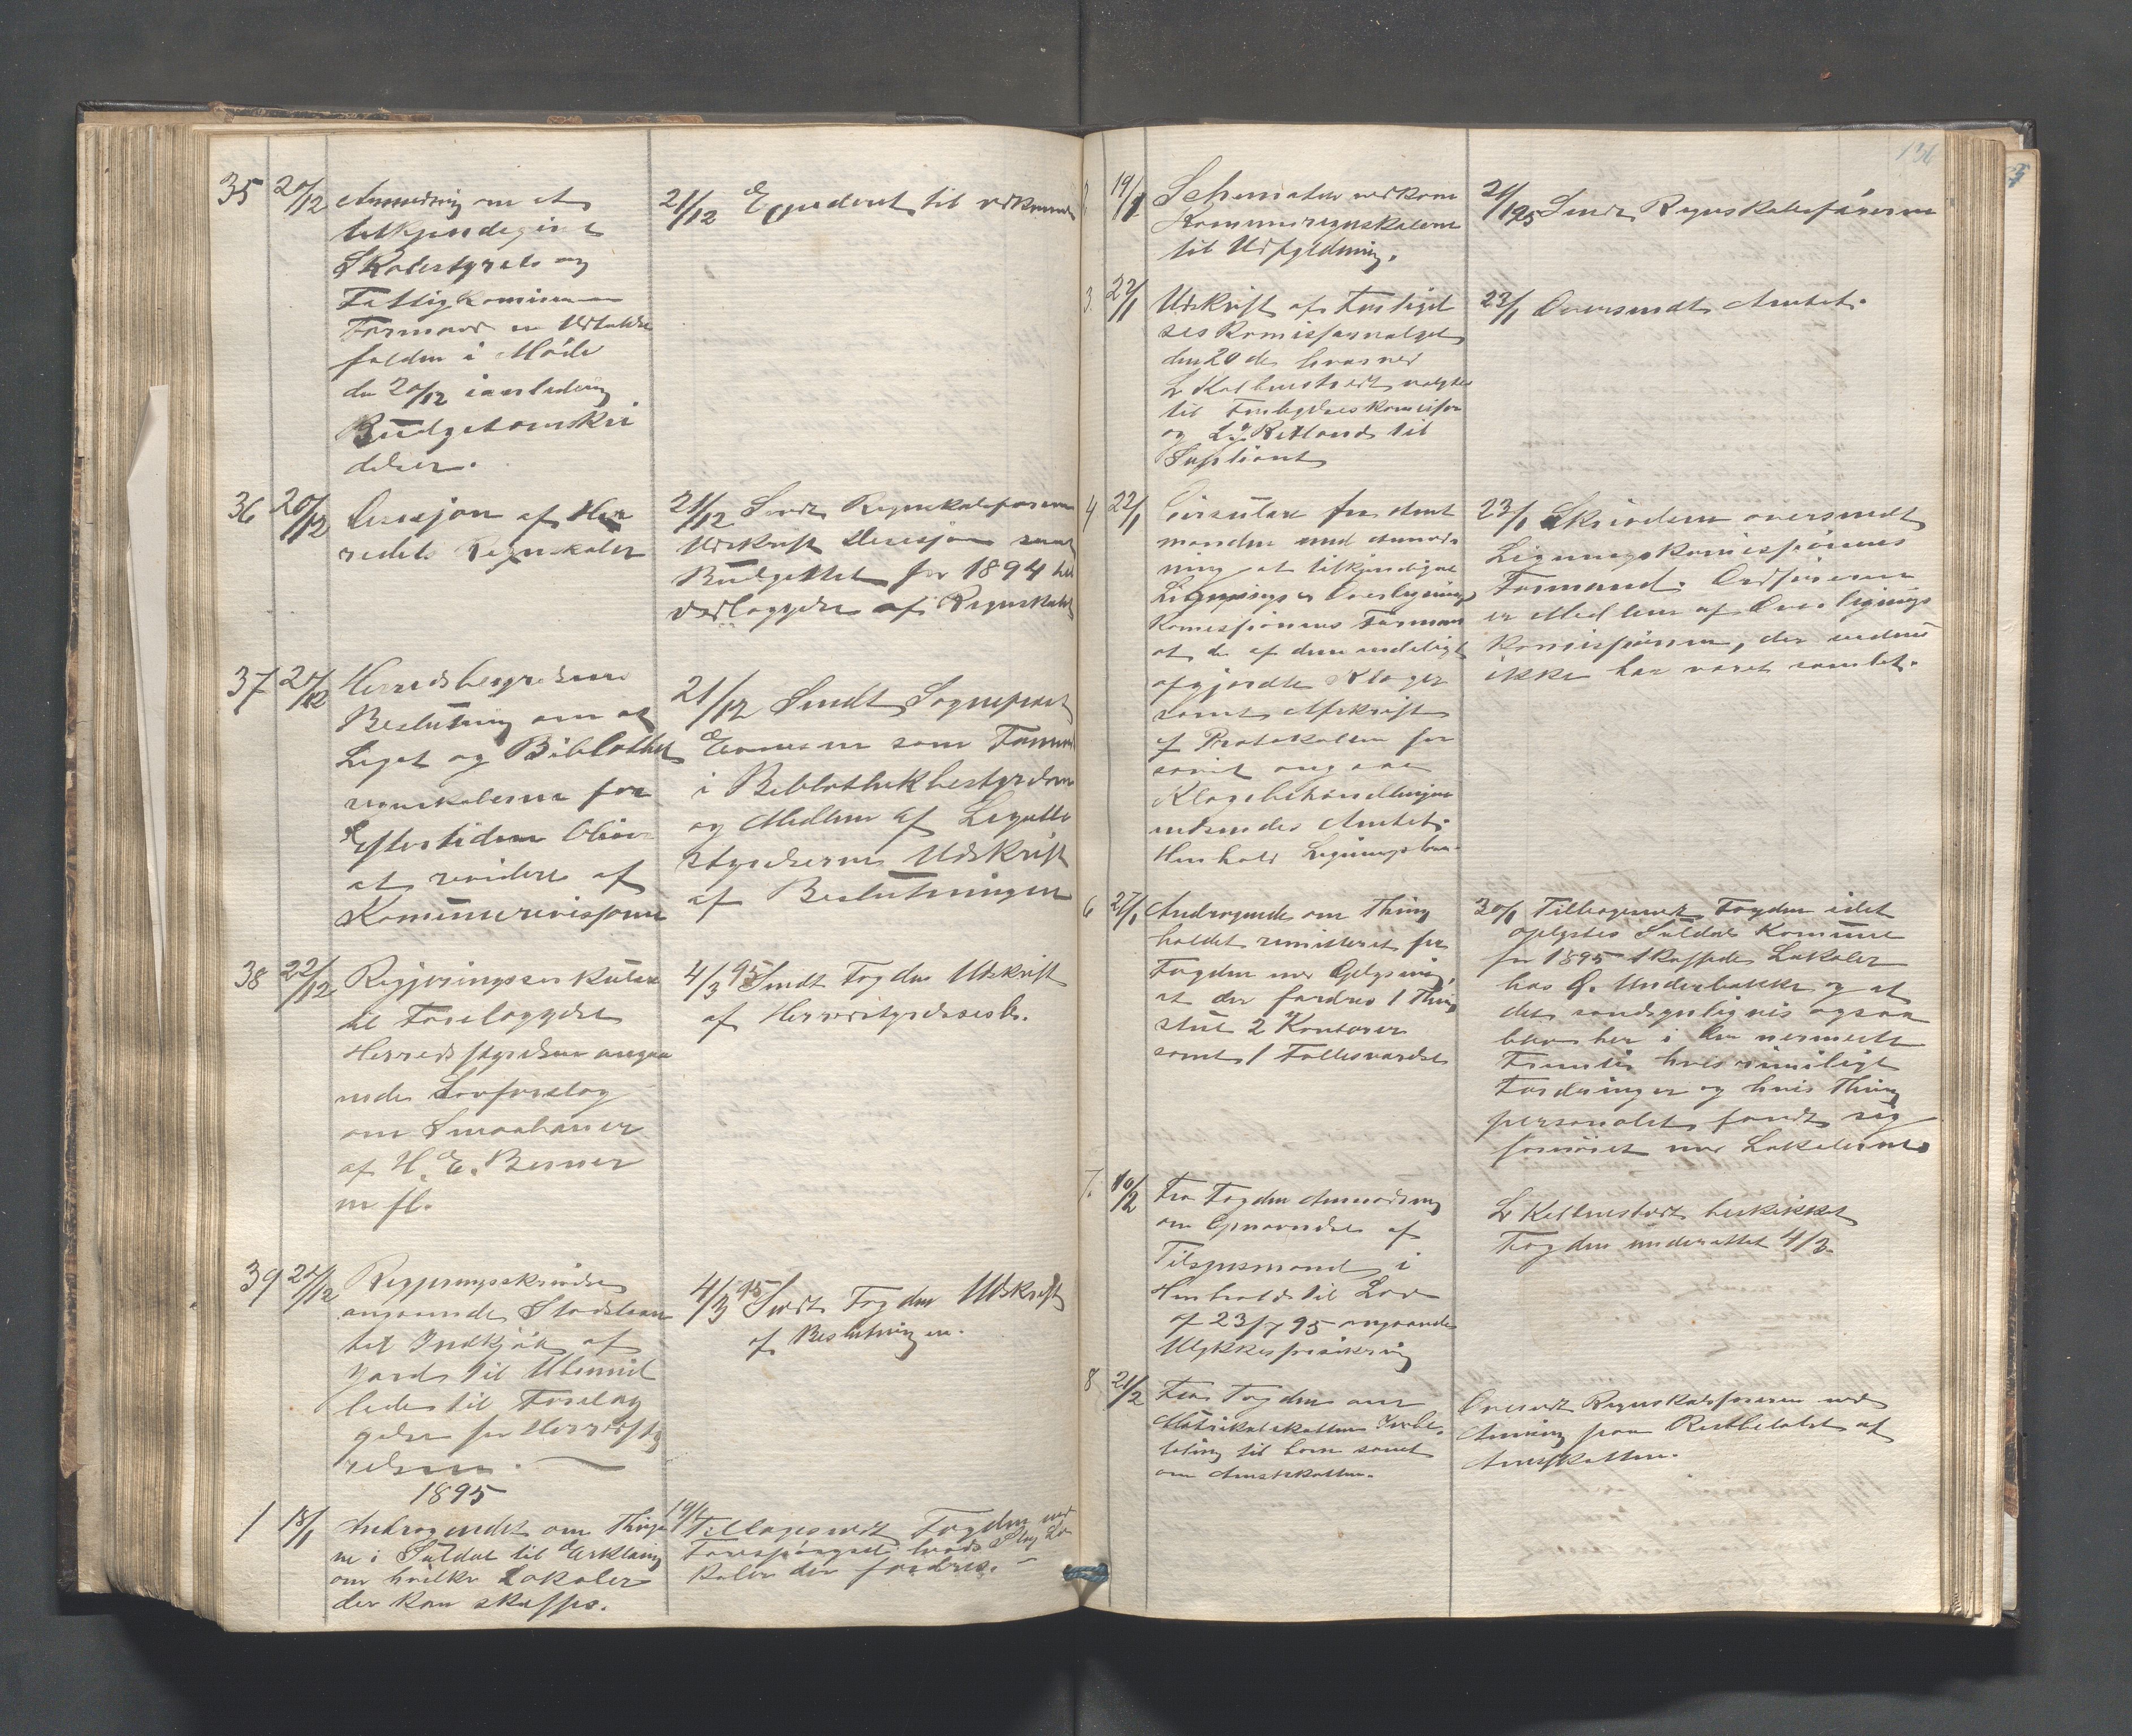 35 20/12 Anmodning om at
tilkjendegive
Skolestyrets og
Fattigkomissionens
Formænd en Udtalelse
falden i Møde
den 20/12 i anledning
Budgetoverskri
delser.
21/12 Expederet til vedkommende
36 20/12 Decisjon af Her
redets Regnskaber
21/12 Sendt Regnskabsføreren
Udskrift Decisjon samt
Budgettet for 1894 til
vedlæggelse af Regnskabet
37 20/12 Herredsbestyrelsens
Beslutning om at
Legat og Bibliothek
regnskaberne for
Eftertiden bliver
at revidere af
Kommunerevisjonen
21/12 Sendt Sogneprest
som Formand
i Bibliothekbestyrelsen
og Medlem af Legatbe
styrelserne Udskrift
af Beslutningen
38 22/12 Regjeringscirkulære
til Forelæggelse
Herredsstyrelsen angaa
ende Lovforslag
om Smaabaner
af H. E. Berner
m fl.
4/3 95 Sendt Fogden Udskrift
af Herredstyrelsesb.
39 24/12 Regjeringsskrivelse
angaaende Stadskas
set Indkjøb af
Jord til Ubemid
lede til Forelæg
gelse for Herredsty
relsen.
4/3 95 Sendt Fogden Udskrift
af Beslutningen.
1895
1 18/1 Andragendet om Thinge
ne i Suldal til Erklæring
om hvilke Lokaler
der kan skaffes.
19/1 Tilbagesendt Fogden med
Forespørgsel hvad Slag Lo
kaler der fordres. —
136
2 19/1 Schemater vedkom
Kommuneregnskaberne
til Udfyldning.
21/1 95 Sendt Regnskabsføreren
3. 22/1 Udskrift af Forligel
seskomissærvalget
den 20 de hvorved
L Kolbenstvedt valgtes
til Forligelseskomissær
og L. Retland til
Supliant
23/1 Oversendt Amtet.
4 22/1 Cirkulære fra Amt
manden med Anmod
ning at tilkjendegive
Lignings og Overligning
komissionens Formænd
at de af dem endeligt
afgjordte Klager
samt Afskrift
af Protokollen for
savit angaar
Klagebehandlingen
indsendes Amtet.
Henhold Ligningslov.
23/1 Skrivelsen oversendt
Ligningskomissionens
Formand. Ordføreren
er Medlem af Overlignings
komissionen, der endnu
ikke har været samlet.
6 27/1 Andragende om Thing
holdet remitteret fra
Fogden med Oplysning,
at der fordres 1 Thing
stue 2 Kontorer
samt 1 Fællesværelse
30/1 Tilbagesendt Fogden idet
oplystes Suldal Kommune
for 1895 skaffede Lokaler
hos O. Underbakke og at
det sandsynligvis ogsaa
blev her i den nermeste
Fremtid hvis rimeligt
Fordringer og hvis Thing
personalet fandt sig
fornøiet med Lokalerne
7. 10/2 Fra Fogden Anmodning
om Opnævnelse af
Tilsynsmand i
Henhold til Lov
af 23/7 95 angaaende
Ulykkesforsikring
L Kolbenstvedt beskikket
Fogden underrettet 4/3.
8 21/2 Fra Fogden om
Matrikulskattens Indbe
taling til ham samt
om Amtsskatten.
Oversendt Regnskabsføreren med
Anvisning paa Restbeløbet af
Amtsskatten.